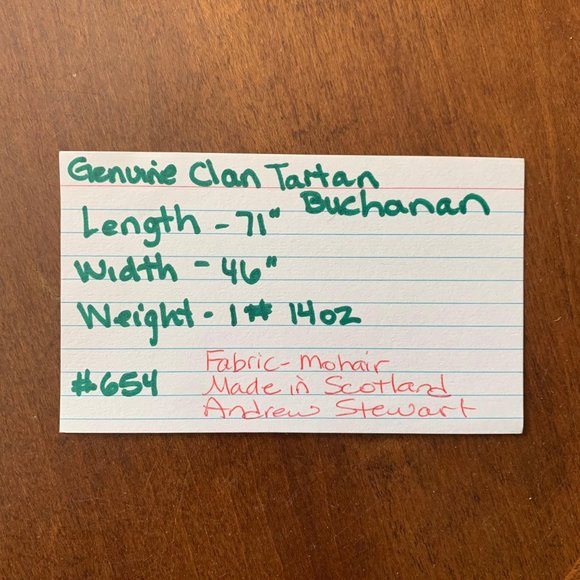 Genuine Clan Tartan
Buchanan
Length - 71"
Width - 46"
Weight - 1# 14oz
#654
Fabric - Mohair
Made in Scotland
Andrew Stewart